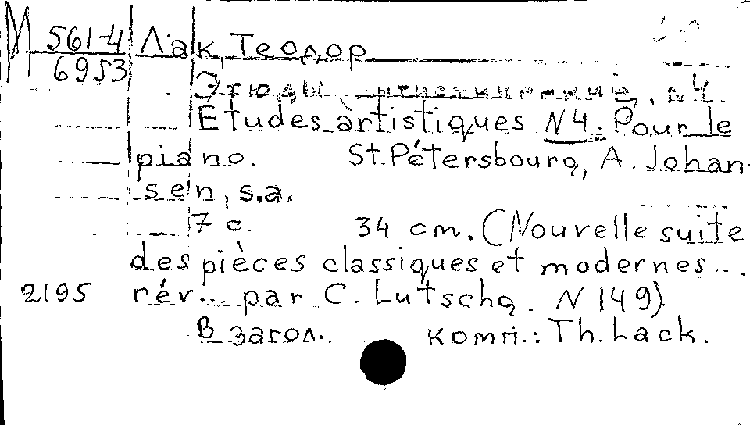 М 561-4 Лак, Теодор
6953
Этюды , №4.
Etudes artistiques N4. Pour le
piano. St.Pétersbourg, A. Johan-
sen, s.a.
7 с. 34 cm. (Nouvelle suite
des pièces classiques et modernes...
2195 rév... par C. Lutschg. N 149)
В загол. комп.: Th. Lack.